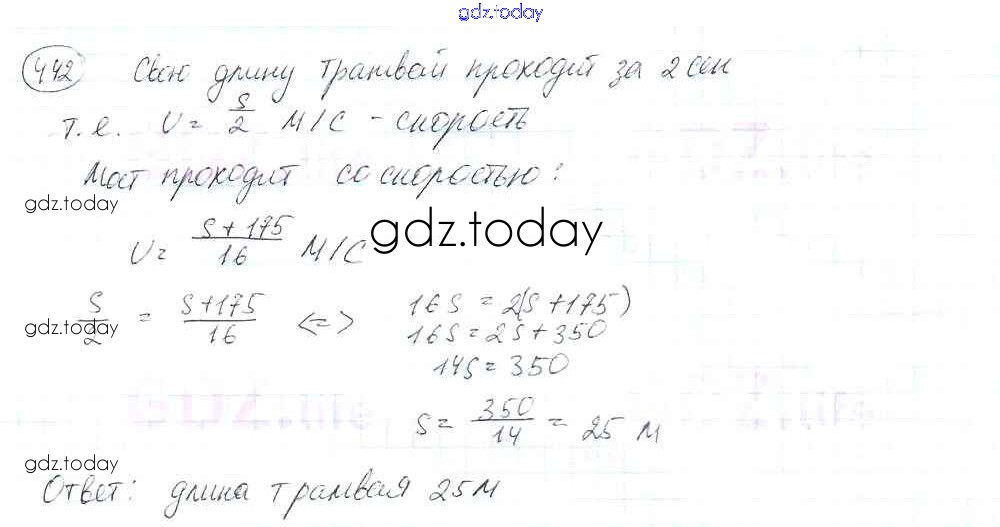 gdz.today
442 Свою длину трамвай проходит за 2 сек
т.е. V = S/2 м/с - скорость
Мост проходит со скоростью:
gdz.today
V = (S + 175)/16 м/с gdz.today
S/2 = (S + 175)/16 <=> 16S = 2(S + 175)
gdz.today
16S = 2S + 350
14S = 350
S = 350/14 = 25 м
gdz.today
Ответ: длина трамвая 25м